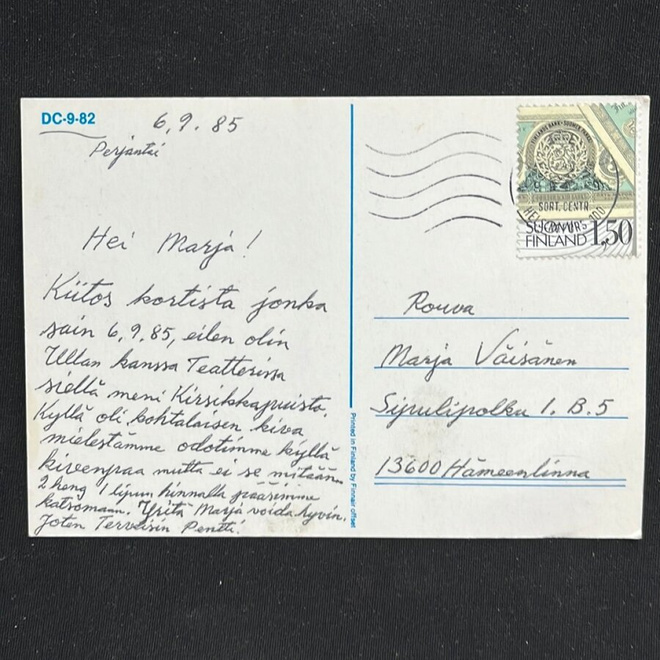 DC-9-82
6.9.85
Perjantai
Hei Marja!
Kiitos kortista jonka
sain 6.9.85, eilen olin
Ullan kanssa Teatterissa
siellä meni Kirsikkapuisto.
Kyllä oli kohtalaisen kiva
mielestämme odotimme kyllä
kivempaa mutta ei se mitään.
2 heng 1 lipun hinnalla pääsimme
katsomaan. Yritä Marja voida hyvin.
Joten Terveisin Pentti.
Printed in Finland by Finnair offset
SORT. CENTR.
SUOMI
FINLAND 1,50
Rouva
Marja Väisänen
Sipulipolku 1. B. 5
13600 Hämeenlinna